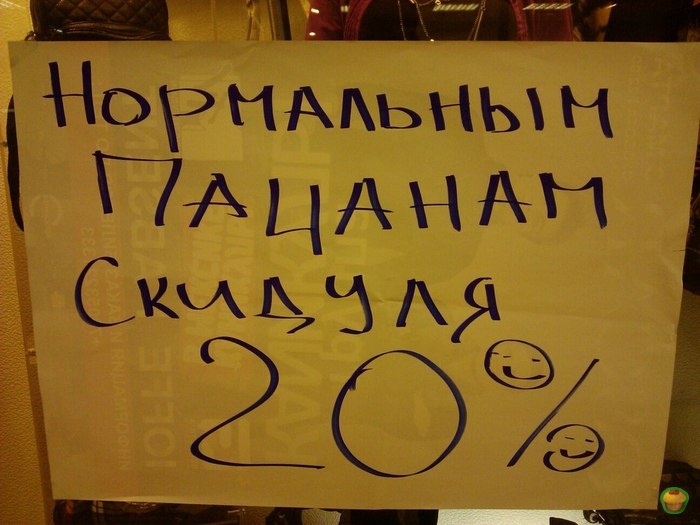 Нормальным
Пацанам
Скидуля
20%